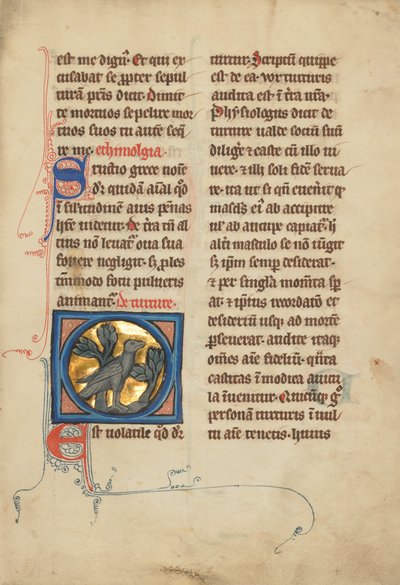 est me dignꝰ. Et qui ex
cusabat se ꝓpter sepul
turā pr̄is dicit. Dimit
te mortuos sepelire mor
tuos suos tu autē seq̄
re me. ethimologia.
Strutio grece noīe
dr̄ quidā aīal qď
ī similitudinē auis pēnas
habē videtur. de t̄ra tn̄ al
tius nō leuatᷣ oua sua
fouere negligit. sꝫ ꝓles
tm̄modo fotu pulueris
animantᷣ. De turture.
Est uolatile qď dr̄
turtur. Scriptū quippe
est de ea. vox turturis
audita est ī t̄ra nr̄a.
Phẏsiologus dicit de
turture ualde sociū suū
diligeᷣe ⁊ caste cū illo ui
uere. ⁊ illi soli fidē serua
re. ita ut si qn̄ euenit̉ ut
masclꝰ eiᷣ ab accipitre
ul̓ ab aucupe capiatᷣ. hͨ
alt̓i masculo se nō iūgit
sꝫ ip̄m semp desiderat.
⁊ per singl̓a momīta sp̄
at. ⁊ ip̄ius recordatōe et
desiderio usqꝫ ad mortē
ꝑseuerat. audite itaqꝫ
om̄es aīe fideliū. qn̄ta
castitas ī modica auicu
la īuenitur. Quicūqꝫ gͦ
personā turturis ī uul
tu aīe tenetis. huius